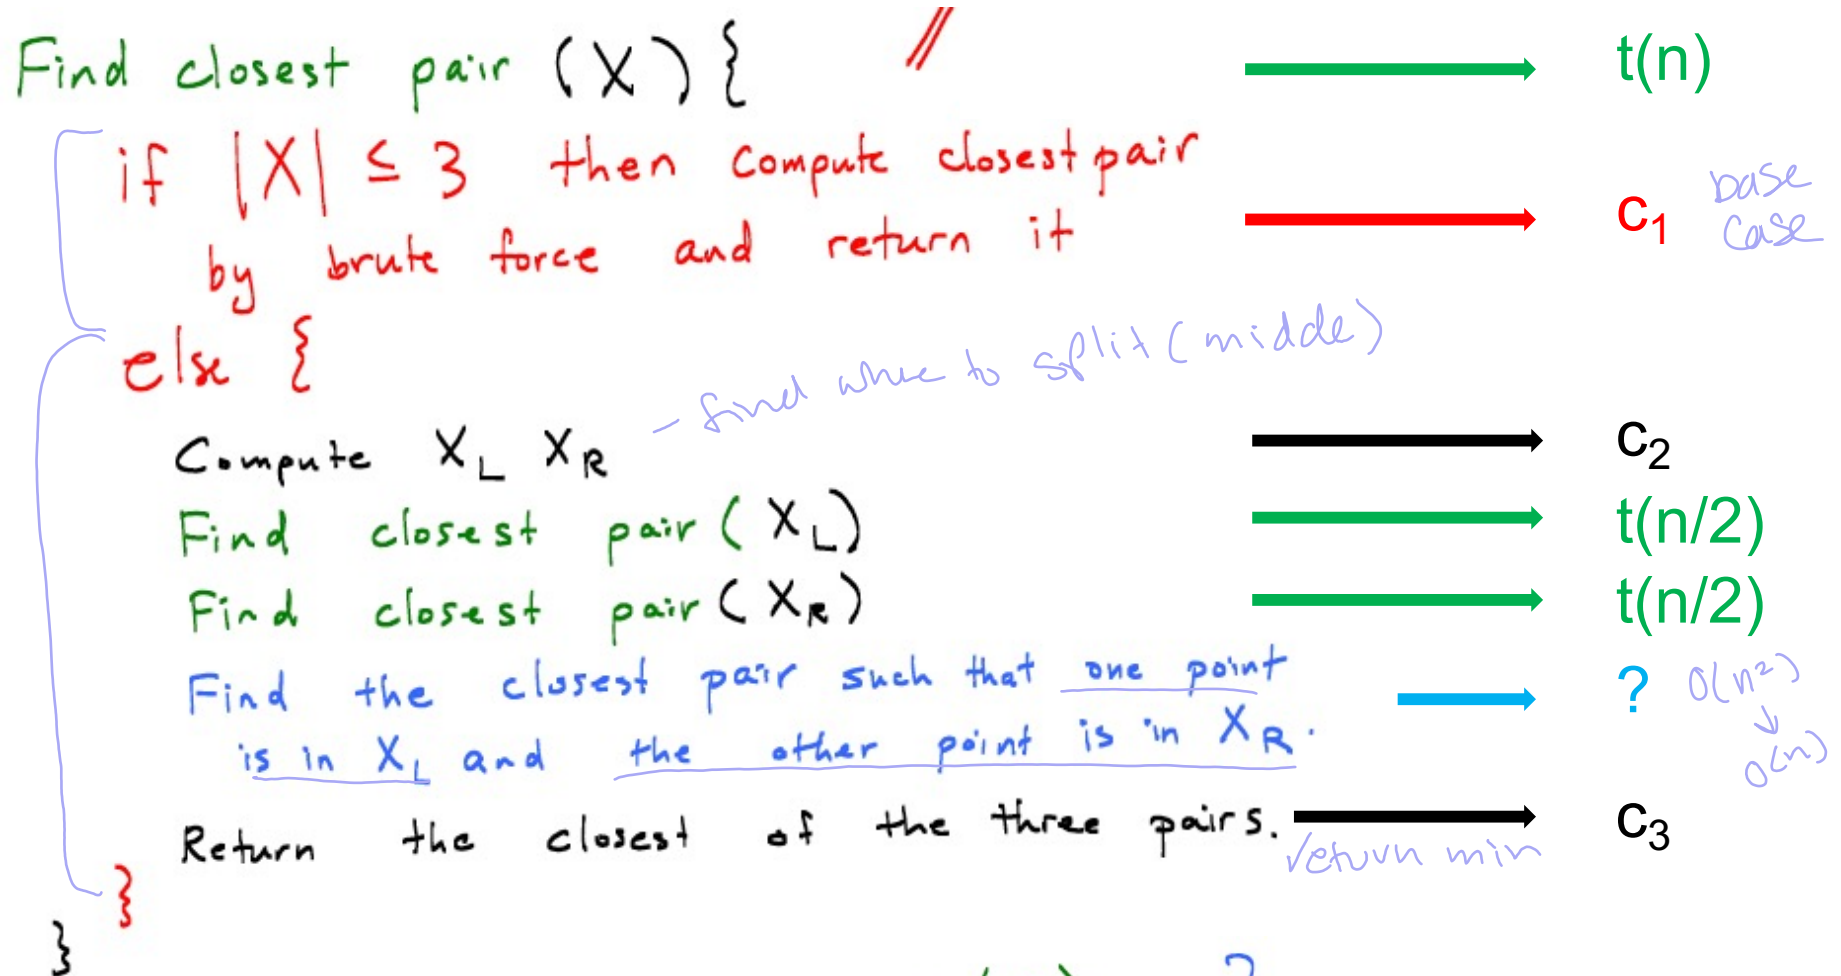 Find closest pair (X) { // t(n)
if |X| ≤ 3 then compute closest pair
by brute force and return it c₁ base case
else {
- find where to split (midde)
Compute X_L X_R c₂
Find closest pair (X_L) t(n/2)
Find closest pair (X_R) t(n/2)
Find the closest pair such that one point
is in X_L and the other point is in X_R. ? O(n²) ↓ O(n)
Return the closest of the three pairs. c₃
return min
}
}
?